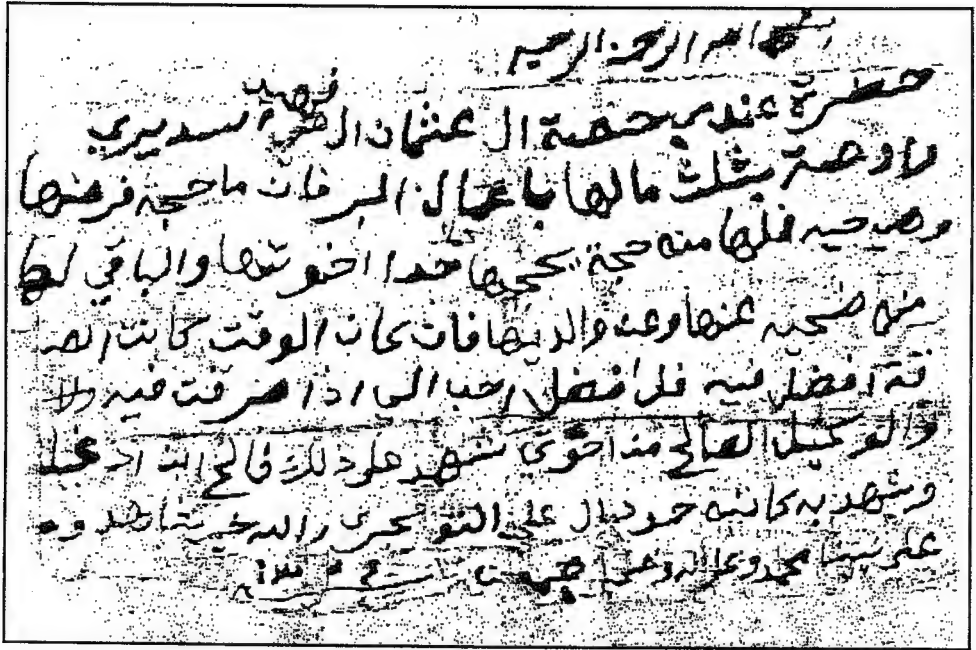 بسم الله الرحمن الرحيم
حضرة عندي حصة ال عثمان ال فهد السديري
واوصة بثلث مالها باعمال البر فان ماحجة فرضها
وهي حيه فلها منه حجة يحجها حدا اخوتها والباقي لها
منه ضحيه عنها وعن والديها فان كان الوقت كانت الصد
قة افضل فيه فلافضل احب الي اذا صرفت فيه
والوكيل الصالح من اخوتي شهد على ذلك فالح ال
وشهد به كاتبه حمود ال علي التويجري والله خير شاهد
على نبينا محمد وعلى اله وصحبه